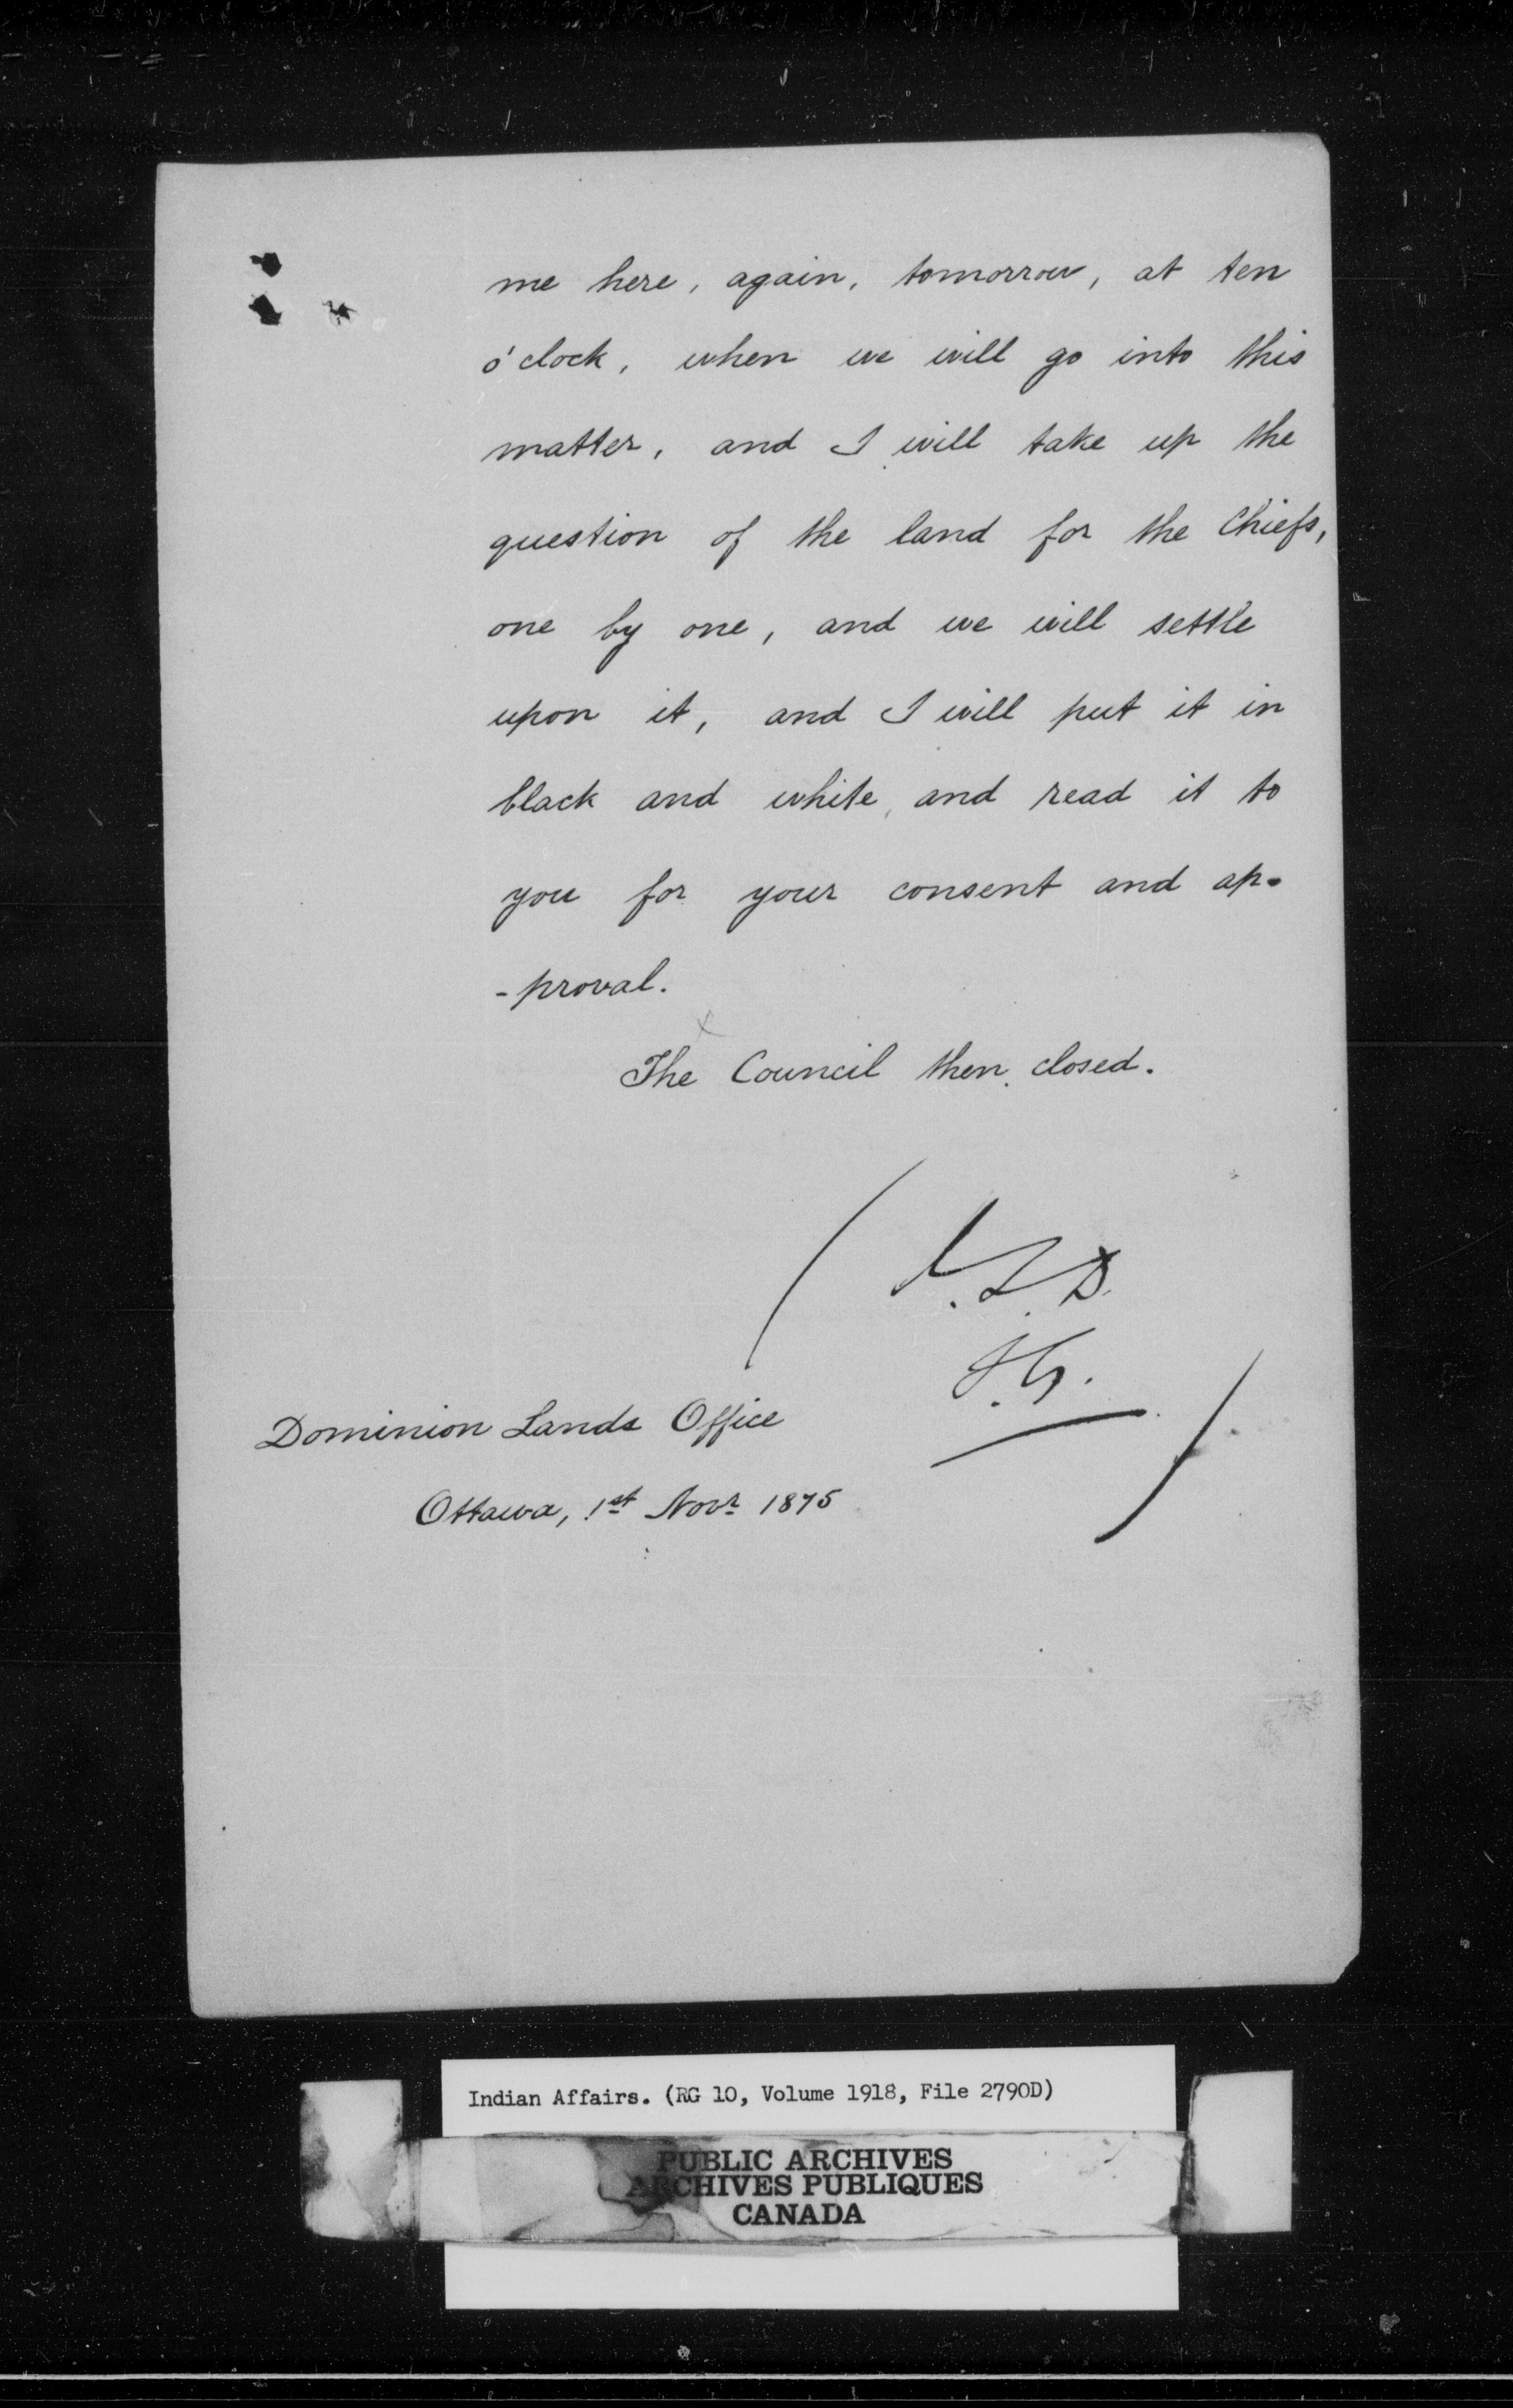 me here, again, tomorrow, at ten
o'clock, when we will go into this
matter, and I will take up the
question of the land for the Chiefs,
one by one, and we will settle
upon it, and I will put it in
black and white, and read it to
you for your consent and ap-
-proval.
The Council then closed.
Dominion Lands Office
Ottawa, 1st Novr 1875
Indian Affairs. (RG 10, Volume 1918, File 2790D)
PUBLIC ARCHIVES
ARCHIVES PUBLIQUES
CANADA